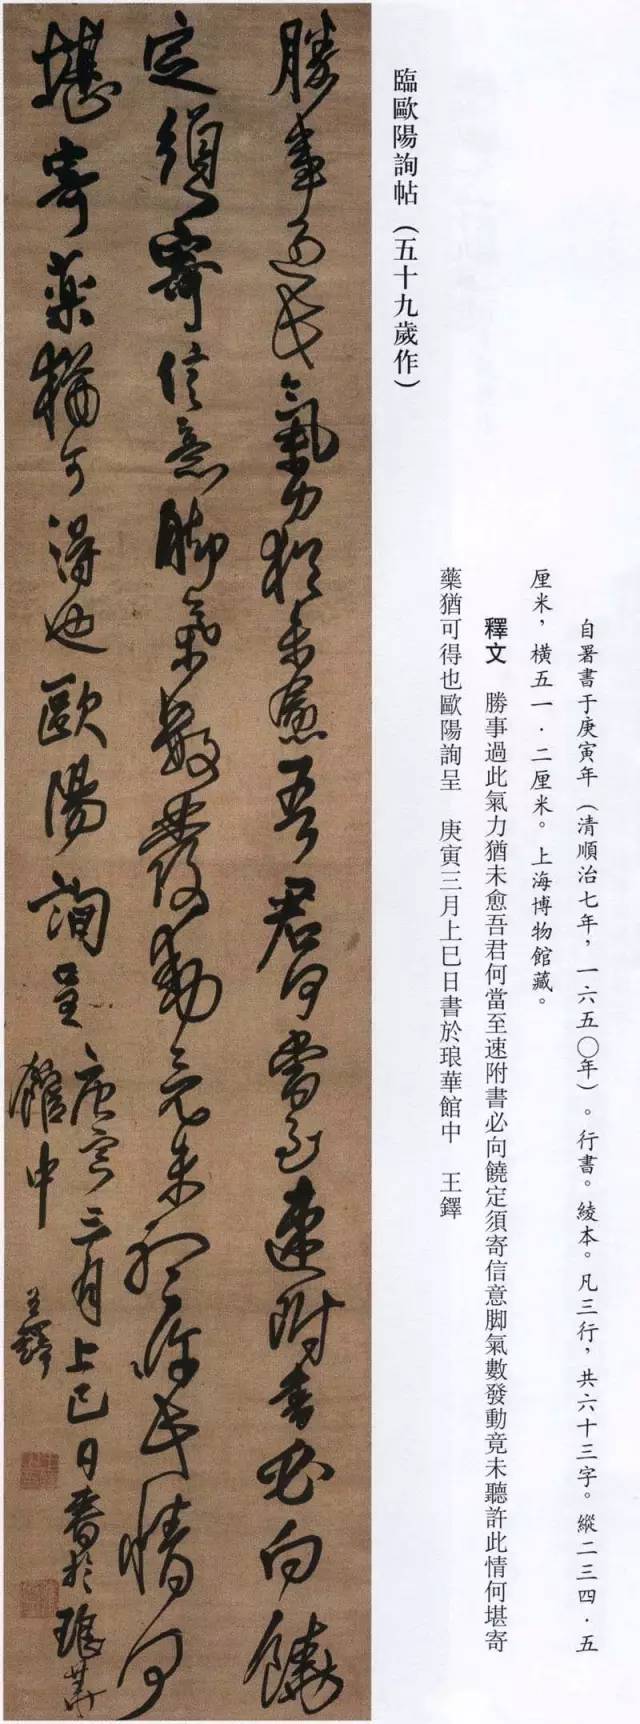 臨歐陽詢帖（五十九歲作）
自署書于庚寅年（清順治七年，一六五〇年）。行書。綾本。凡三行，共六十三字。縱二三四·五
厘米，橫五一·二厘米。上海博物館藏。
釋文　勝事過此氣力猶未愈吾君何當至速附書必向饒定須寄信意脚氣數發動竟未聽許此情何堪寄
藥猶可得也歐陽詢呈　庚寅三月上巳日書於琅華館中　王鐸
勝事過此氣力猶未愈吾君何當至速附書必向饒
定須寄信意脚氣數發動竟未聽許此情何
堪寄藥猶可得也歐陽詢呈
庚寅三月上巳日書於琅華
館中
王鐸